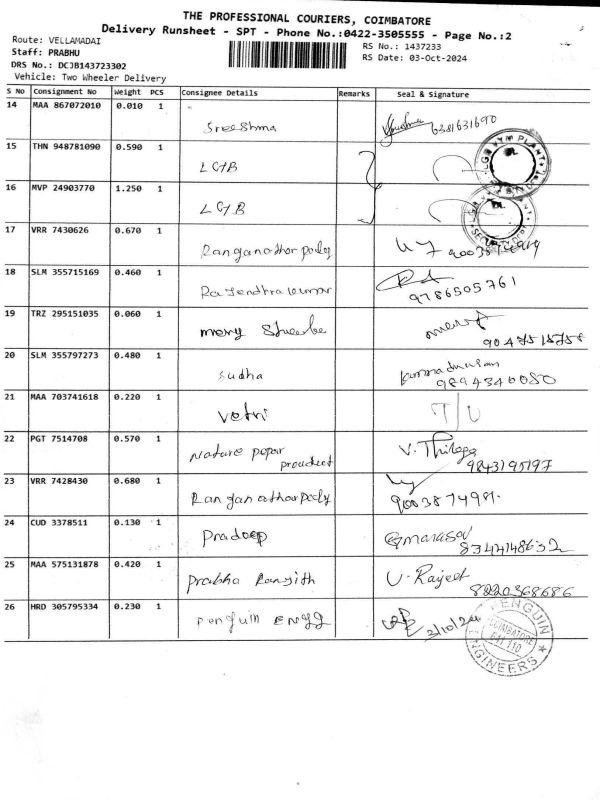 THE PROFESSIONAL COURIERS, COIMBATORE
Delivery Runsheet - SPT - Phone No.:0422-3505555 - Page No.:2
Route: VELLAMADAI
RS No.: 1437233
Staff: PRABHU
RS Date: 03-Oct-2024
DRS No.: DCJB143723302
Vehicle: Two Wheeler Delivery
S No Consignment No Weight PCS Consignee Details Remarks Seal & Signature
14 MAA 867072010 0.010 1 Sreeshma 6381631690
15 THN 948781090 0.590 1 LGB
16 MVP 24903770 1.250 1 LGB
17 VRR 7430626 0.670 1
18 SLM 355715169 0.460 1 Rajendhra kumar 9786505761
19 TRZ 295151035 0.060 1 mery
20 SLM 355797273 0.480 1 Sudha 9894340080
21 MAA 703741618 0.220 1 Vetri T/U
22 PGT 7514708 0.570 1 Nature peper V. Thilaga
prouduct 9843195197
23 VRR 7428430 0.680 1
24 CUD 3378511 0.130 1 Pradeep 8344148632
25 MAA 575131878 0.420 1 Prabha Ranjith U. Rajeet
8220368686
26 HRD 305795334 0.230 1 Penguin Engg 3/10/24
PENGUIN ENGINEERS
COIMBATORE
641 110